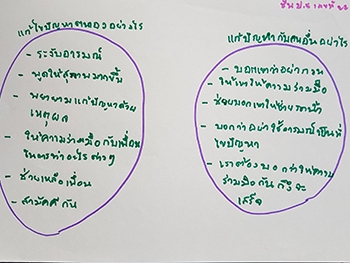 ชั้น ป.๕ เลขที่ ๒๒
แก้ไขปัญหาตนเองอย่างไร
- ระงับอารมณ์
- พูดให้สุภาพมากขึ้น
- พยายามแก้ปัญหาด้วย
เหตุผล
- ให้ความร่วมมือกับเพื่อน
ในการทำอะไรต่างๆ
- ช่วยเหลือเพื่อน
- สามัคคีกัน
แก้ปัญหากับคนอื่นอย่างไร
- บอกเขาว่าอย่ากวน
- ให้เขาให้ความร่วมมือ
- ช่วยบอกเขาให้ช่วย
- บอกว่าอย่าใช้อารมณ์เป็นที่
ไขปัญหา
- เราต้องบอกว่าให้ความ
ร่วมมือกันถึงจะ
เสร็จ